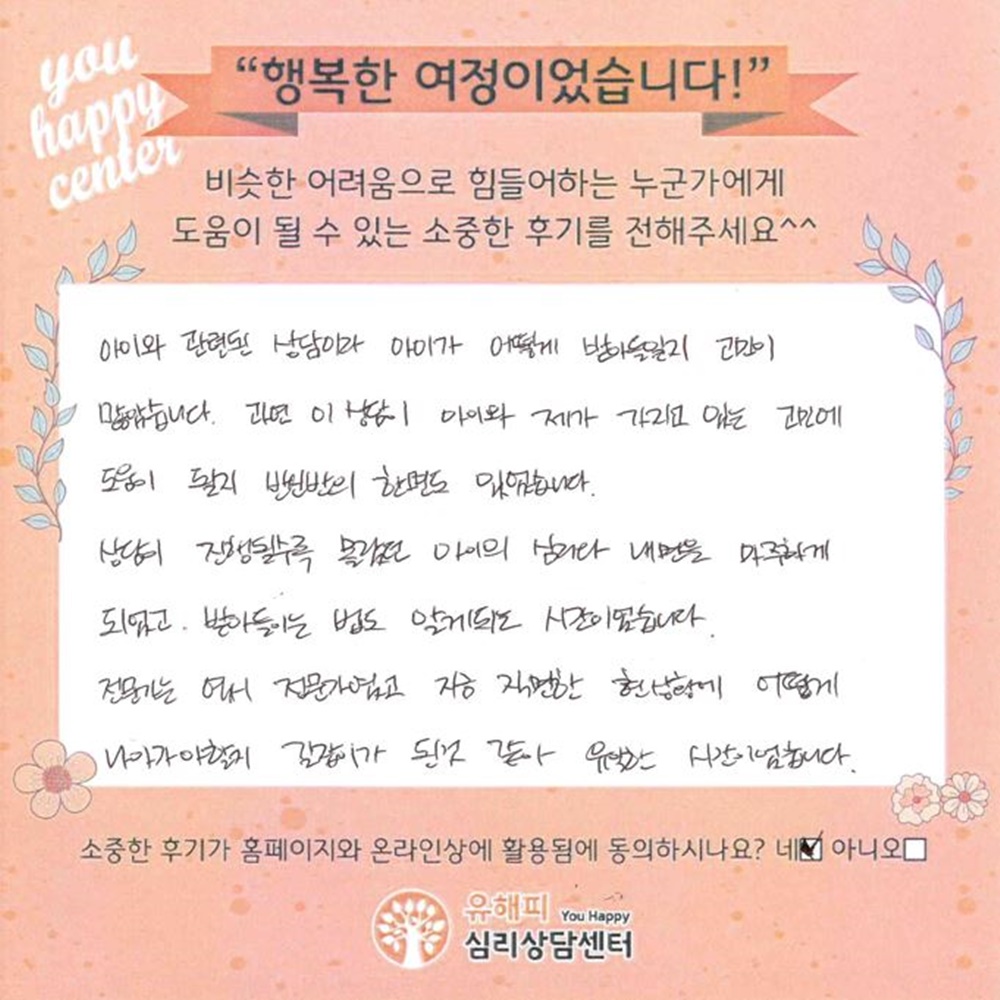 you
happy
center
“행복한 여정이었습니다!”
비슷한 어려움으로 힘들어하는 누군가에게
도움이 될 수 있는 소중한 후기를 전해주세요^^
아이와 관련된 상담이라 아이가 어떻게 받아들일지 고민이
많았습니다. 과연 이 상담이 아이와 제가 가지고 있는 고민에
도움이 될지 반신반의 한면도 있었습니다.
상담이 진행될수록 몰랐던 아이의 심리나 내면을 마주하게
되었고. 받아들이는 법도 알게되는 시간이었습니다.
전문가는 역시 전문가였고 지금 직면한 현상황에 어떻게
나아가야할지 길잡이가 된것 같아 유익한 시간이었습니다.
소중한 후기가 홈페이지와 온라인상에 활용됨에 동의하시나요? 네 아니오
유해피 You Happy
심리상담센터